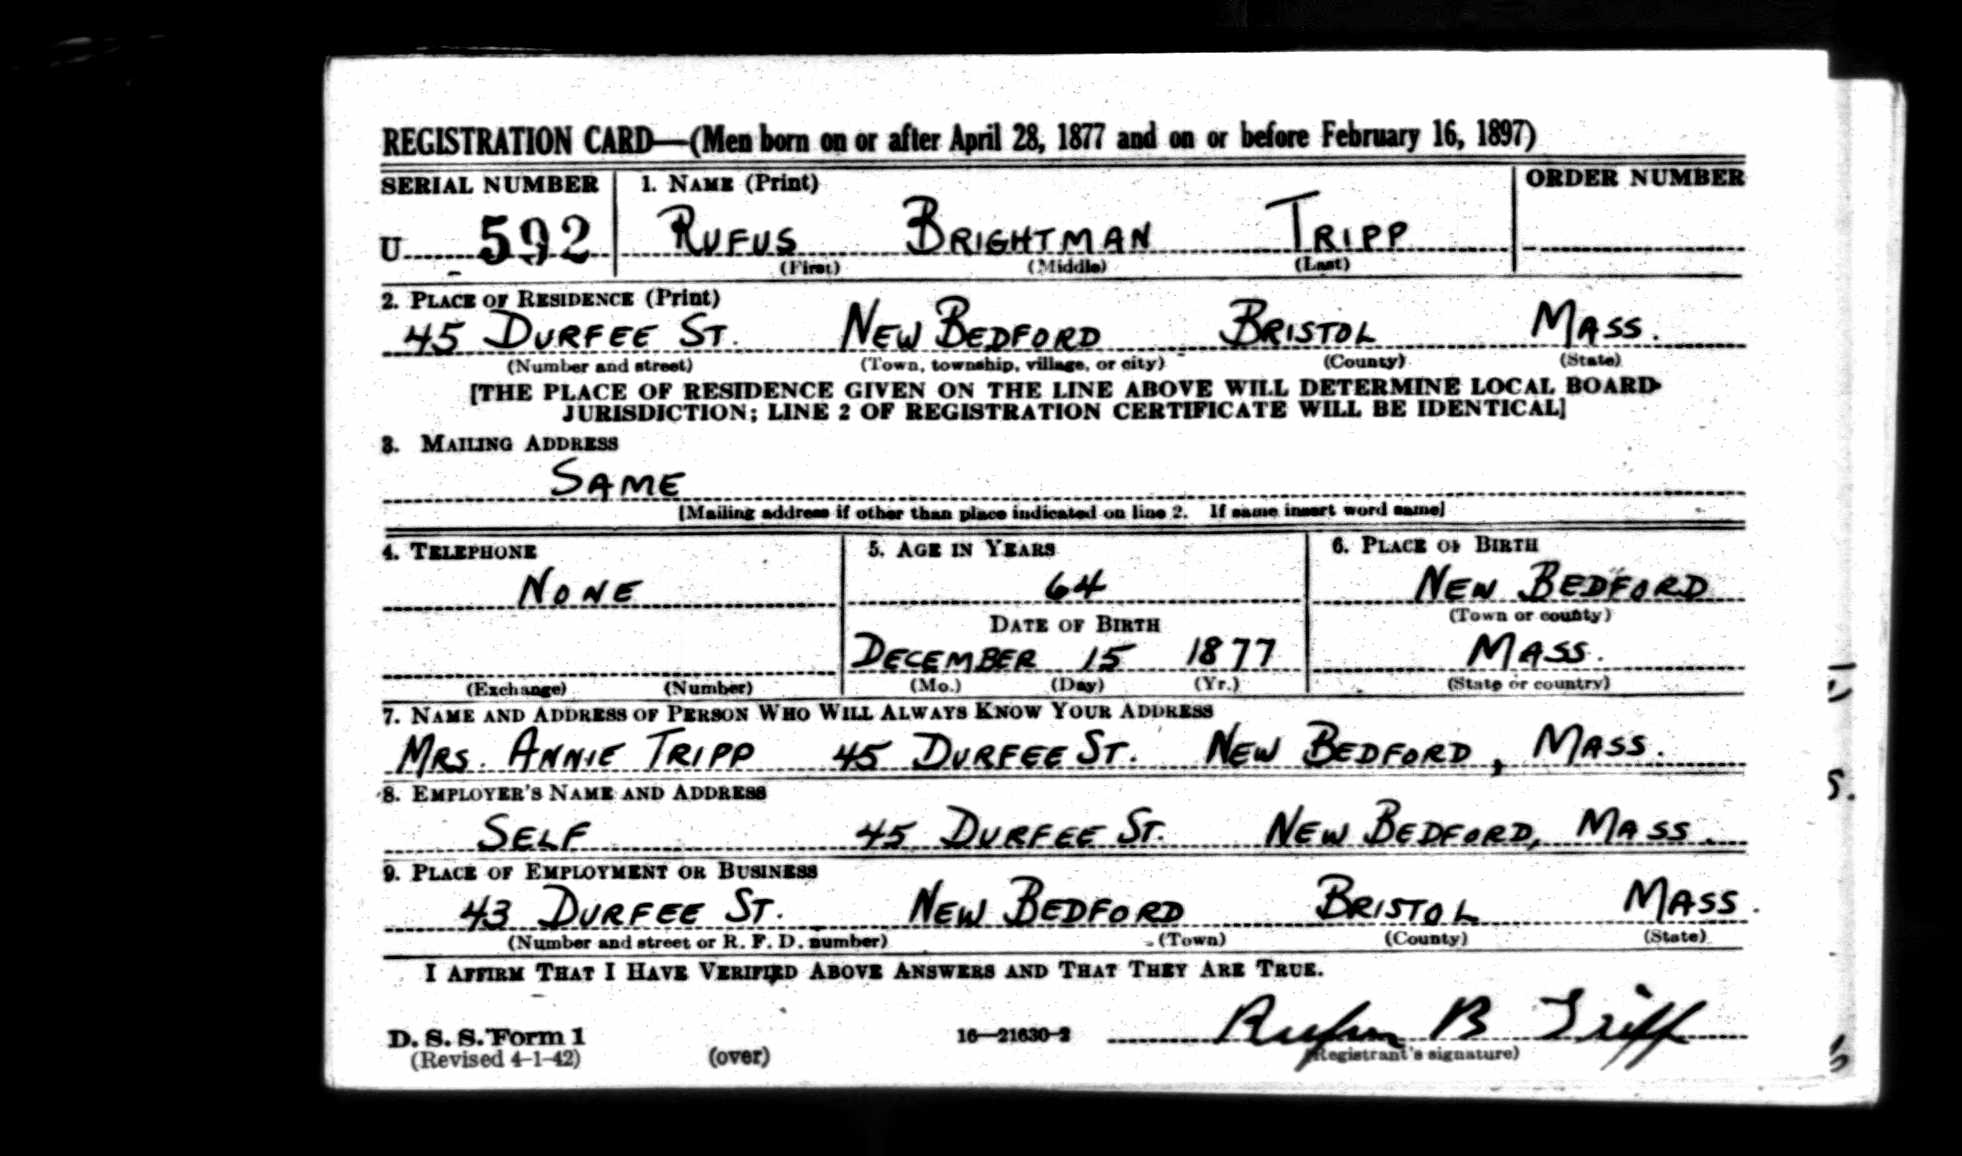 REGISTRATION CARD—(Men born on or after April 28, 1877 and on or before February 16, 1897)
SERIAL NUMBER 1. NAME (Print) ORDER NUMBER
U 592 RUFUS BRIGHTMAN TRIPP
(First) (Middle) (Last)
2. PLACE OF RESIDENCE (Print)
45 DURFEE ST. NEW BEDFORD BRISTOL MASS.
(Number and street) (Town, township, village, or city) (County) (State)
[THE PLACE OF RESIDENCE GIVEN ON THE LINE ABOVE WILL DETERMINE LOCAL BOARD
JURISDICTION; LINE 2 OF REGISTRATION CERTIFICATE WILL BE IDENTICAL]
3. MAILING ADDRESS
SAME
[Mailing address if other than place indicated on line 2. If same insert word same]
4. TELEPHONE 5. AGE IN YEARS 6. PLACE OF BIRTH
NONE 64 NEW BEDFORD
DATE OF BIRTH (Town or county)
DECEMBER 15 1877 MASS.
(Exchange) (Number) (Mo.) (Day) (Yr.) (State or country)
7. NAME AND ADDRESS OF PERSON WHO WILL ALWAYS KNOW YOUR ADDRESS
MRS. ANNIE TRIPP 45 DURFEE ST. NEW BEDFORD, MASS.
8. EMPLOYER'S NAME AND ADDRESS
SELF 45 DURFEE ST. NEW BEDFORD, MASS.
9. PLACE OF EMPLOYMENT OR BUSINESS
43 DURFEE ST. NEW BEDFORD BRISTOL MASS.
(Number and street or R. F. D. number) (Town) (County) (State)
I AFFIRM THAT I HAVE VERIFIED ABOVE ANSWERS AND THAT THEY ARE TRUE.
Rufus B Tripp
D. S. S. Form 1 16—21630-2 (Registrant's signature)
(Revised 4-1-42) (over)